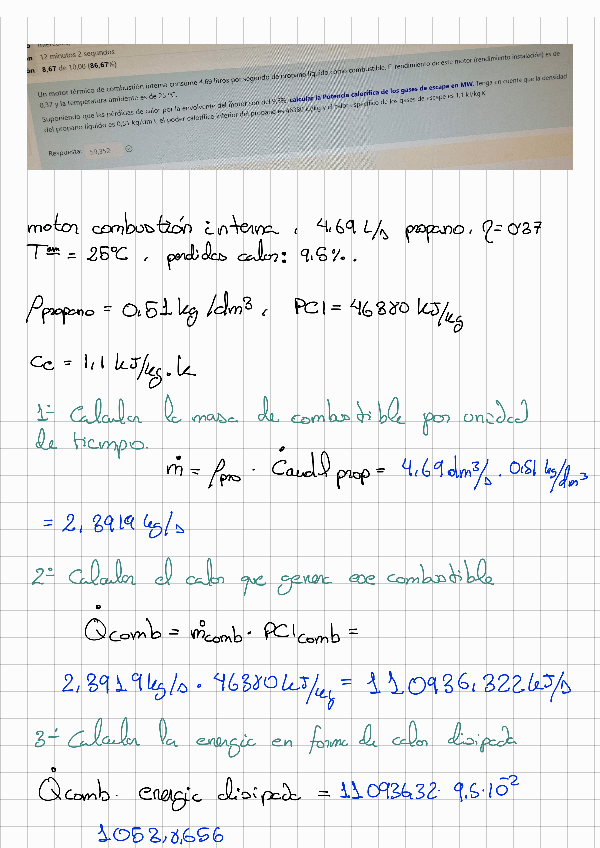 12 minutos 2 segundos
8,67 de 10,00 (86,67%)
Un motor térmico de combustión interna consume 4,69 litros por segundo de propano líquido como combustible. El rendimiento de este motor (rendimiento instalación) es de
0,37 y la temperatura ambiente es de 25 °C.
Suponiendo que las pérdidas de calor por la envolvente del motor son del 9,5%, calcular la Potencia calorífica de los gases de escape en MW. Tenga en cuenta que la densidad
del propano líquido es 0,51 kg/dm³, el poder calorífico inferior del propano es 46380 kJ/kg y el calor específico de los gases de escape es 1,1 kJ/kg·K
Respuesta: 59,352
motor combustión interna, 4.69 L/s propano, η=0'37
Tᵃᵐ = 25ºC, perdidas calor: 9.5%.
ρpropano = 0.51 kg/dm³, PCI = 46380 kJ/kg
Ce = 1,1 kJ/kg.k
1º Calcular la masa de combustible por unidad
de tiempo.
ṁ = ρpro · Caudal prop = 4,69 dm³/s . 0.51 kg/dm³
= 2,3919 kg/s
2º Calcular el calor que genera ese combustible
Q̇comb = ṁcomb · PCIcomb =
2,3919 kg/s · 46380 kJ/kg = 110936,322 kJ/s
3º Calcular la energia en forma de calor disipada
Q̇comb · energia disipada = 11093632· 9,5·10⁻²
1053,8656